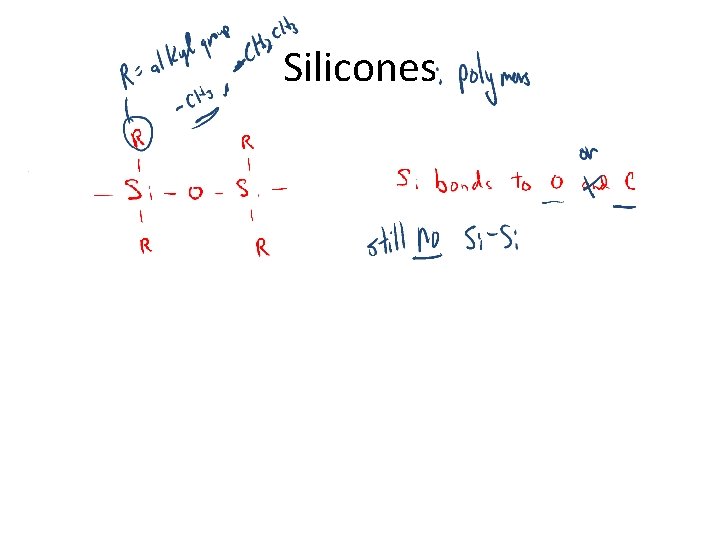 Silicones: polymers
R = alkyl group
-CH3, -CH2CH3
R R
— Si – O – Si –
R R
Si bonds to O and C
or
still no Si-Si